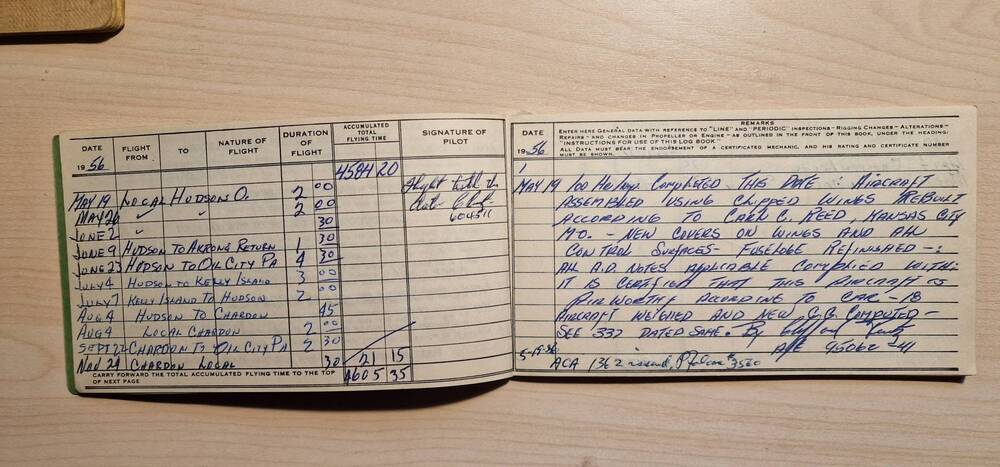 DATE FLIGHT FROM TO NATURE OF FLIGHT DURATION OF FLIGHT ACCUMULATED TOTAL FLYING TIME SIGNATURE OF PILOT
1956 4584 20
MAY 19 LOCAL HUDSON O. 2 00
MAY 26 ✓ ✓ 2 00
JUNE 2 ✓ 30
604311
JUNE 9 HUDSON TO AKRON & RETURN 1 30
JUNE 23 HUDSON TO OIL CITY PA 4 30
JULY 4 HUDSON TO KELLY ISLAND 3 00
JULY 7 KELLY ISLAND TO HUDSON 2 00
AUG 4 HUDSON TO CHARDON 45
AUG 9 LOCAL CHARDON 2 00
SEPT 22 CHARDON TO OIL CITY PA 2 30
NOV 24 CHARDON LOCAL 30 21 15
CARRY FORWARD THE TOTAL ACCUMULATED FLYING TIME TO THE TOP OF NEXT PAGE 4605 35
DATE
1956
REMARKS
ENTER HERE GENERAL DATA WITH REFERENCE TO "LINE" AND "PERIODIC" INSPECTIONS-RIGGING CHANGES-ALTERATIONS-
REPAIRS-AND CHANGES IN PROPELLER OR ENGINE-AS OUTLINED IN THE FRONT OF THIS BOOK, UNDER THE HEADING:
"INSTRUCTIONS FOR USE OF THIS LOG BOOK."
ALL DATA MUST BEAR THE ENDORSEMENT OF A CERTIFICATED MECHANIC, AND HIS RATING AND CERTIFICATE NUMBER
MUST BE SHOWN.
MAY 19 100 Hr Insp. Completed THIS DATE: AIRCRAFT
ASSEMBLED USING CLIPPED WINGS REBUILT
ACCORDING TO CARL C. REED, KANSAS CITY
MO. - NEW COVERS ON WINGS AND ALL
CONTROL SURFACES - FUSELOGE REFINISHED -:
ALL A.D. NOTES APPLICABLE COMPLIED WITH:
IT IS CERTIFIED THAT THIS AIRCRAFT IS
AIRWORTHY ACCORDING TO CAR - 18
AIRCRAFT WEIGHED AND NEW C.G. COMPUTED -
SEE 337 DATED SAME. By
A&E 95062-41
5-19-56
ACA 1362 issued,